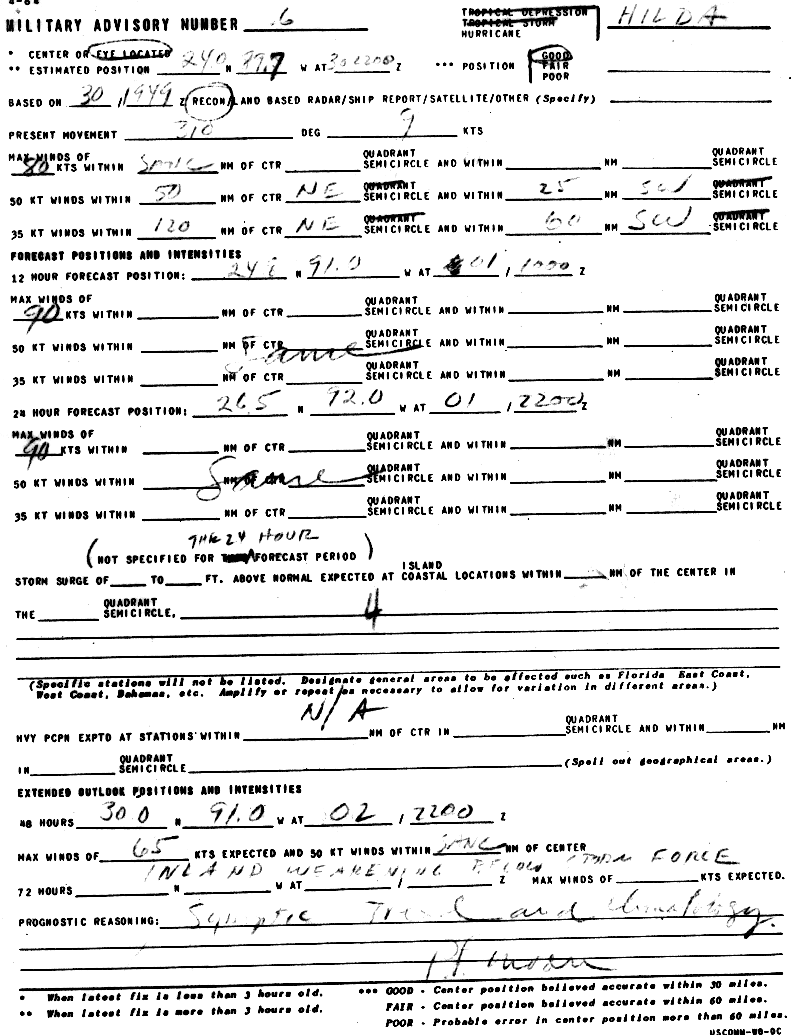 MILITARY ADVISORY NUMBER 6 TROPICAL DEPRESSION TROPICAL STORM HURRICANE HILDA
* CENTER OR EYE LOCATED
** ESTIMATED POSITION 240 N 89.7 W AT 30 2200 Z *** POSITION GOOD FAIR POOR
BASED ON 30, 1949 Z RECON/LAND BASED RADAR/SHIP REPORT/SATELLITE/OTHER (Specify)
PRESENT MOVEMENT 310 DEG 9 KTS
MAX WINDS OF 80 KTS WITHIN NM OF CTR QUADRANT SEMICIRCLE AND WITHIN NM QUADRANT SEMICIRCLE
50 KT WINDS WITHIN 50 NM OF CTR NE QUADRANT SEMICIRCLE AND WITHIN 25 NM SW QUADRANT SEMICIRCLE
35 KT WINDS WITHIN 120 NM OF CTR NE QUADRANT SEMICIRCLE AND WITHIN 60 NM SW QUADRANT SEMICIRCLE
FORECAST POSITIONS AND INTENSITIES
12 HOUR FORECAST POSITION: N 91.0 W AT 01 / 1000 Z
MAX WINDS OF 90 KTS WITHIN NM OF CTR QUADRANT SEMICIRCLE AND WITHIN NM QUADRANT SEMICIRCLE
50 KT WINDS WITHIN NM OF CTR Same QUADRANT SEMICIRCLE AND WITHIN NM QUADRANT SEMICIRCLE
35 KT WINDS WITHIN NM OF CTR QUADRANT SEMICIRCLE AND WITHIN NM QUADRANT SEMICIRCLE
24 HOUR FORECAST POSITION: 26.5 N 92.0 W AT 01 / 2200 Z
MAX WINDS OF 90 KTS WITHIN NM OF CTR QUADRANT SEMICIRCLE AND WITHIN NM QUADRANT SEMICIRCLE
50 KT WINDS WITHIN NM OF CTR Same QUADRANT SEMICIRCLE AND WITHIN NM QUADRANT SEMICIRCLE
35 KT WINDS WITHIN NM OF CTR QUADRANT SEMICIRCLE AND WITHIN NM QUADRANT SEMICIRCLE
THE 24 HOUR
(NOT SPECIFIED FOR FORECAST PERIOD)
STORM SURGE OF TO FT. ABOVE NORMAL EXPECTED AT ISLAND COASTAL LOCATIONS WITHIN NM OF THE CENTER IN
THE QUADRANT SEMICIRCLE, 4
(Specific stations will not be listed. Designate general areas to be affected such as Florida East Coast,
West Coast, Bahamas, etc. Amplify or repeat as necessary to allow for variation in different areas.)
N/A
HVY PCPN EXPTD AT STATIONS WITHIN NM OF CTR IN QUADRANT SEMICIRCLE AND WITHIN NM
IN QUADRANT SEMICIRCLE (Spell out geographical areas.)
EXTENDED OUTLOOK POSITIONS AND INTENSITIES
48 HOURS 30.0 N 91.0 W AT 02 / 2200 Z
MAX WINDS OF 65 KTS EXPECTED AND 50 KT WINDS WITHIN NM OF CENTER
INLAND WEAKENING BELOW STORM FORCE
72 HOURS N W AT / Z MAX WINDS OF KTS EXPECTED.
PROGNOSTIC REASONING: Synoptic Trend and climatology.
* When latest fix is less than 3 hours old.
** When latest fix is more than 3 hours old.
*** GOOD - Center position believed accurate within 30 miles.
FAIR - Center position believed accurate within 60 miles.
POOR - Probable error in center position more than 60 miles.
USCOMM-WB-DC